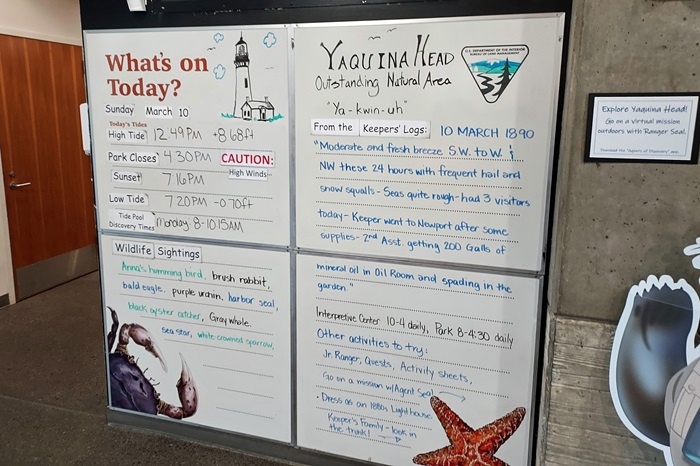 What's on
Today?
Sunday March 10
Today's Tides
High Tide 12:49 PM +8.68ft
Park Closes 4:30PM CAUTION:
High Winds
Sunset 7:16PM
Low Tide 7:20PM -0.70ft
Tide Pool
Discovery Times Monday 8-10:15AM
Wildlife Sightings
Anna's humming bird, brush rabbit,
bald eagle, purple urchin, harbor seal,
black oyster catcher, Gray whale.
sea star, white crowned sparrow,
YAQUINA HEAD
Outstanding Natural Area
"Ya-kwin-uh"
U.S. DEPARTMENT OF THE INTERIOR
BUREAU OF LAND MANAGEMENT
From the Keepers' Logs: 10 MARCH 1890
"Moderate and fresh breeze S.W. to W. &
NW these 24 hours with frequent hail and
snow squalls - Seas quite rough - had 3 visitors
today - Keeper went to Newport after some
supplies - 2nd Asst. getting 200 Galls of
mineral oil in Oil Room and spading in the
garden."
Interpretive Center 10-4 daily, Park 8-4:30 daily
Other activities to try:
Jr. Ranger, Quests, Activity sheets,
Go on a mission w/Agent Seal
• Dress as an 1880s Lighthouse
Keeper's Family - look in
the trunk!
Explore Yaquina Head!
Go on a virtual mission
outdoors with Ranger Seal.